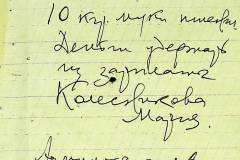 10 кг. муки пшенич
Деньги удержать
из зарплаты
Колесникова
Мария.